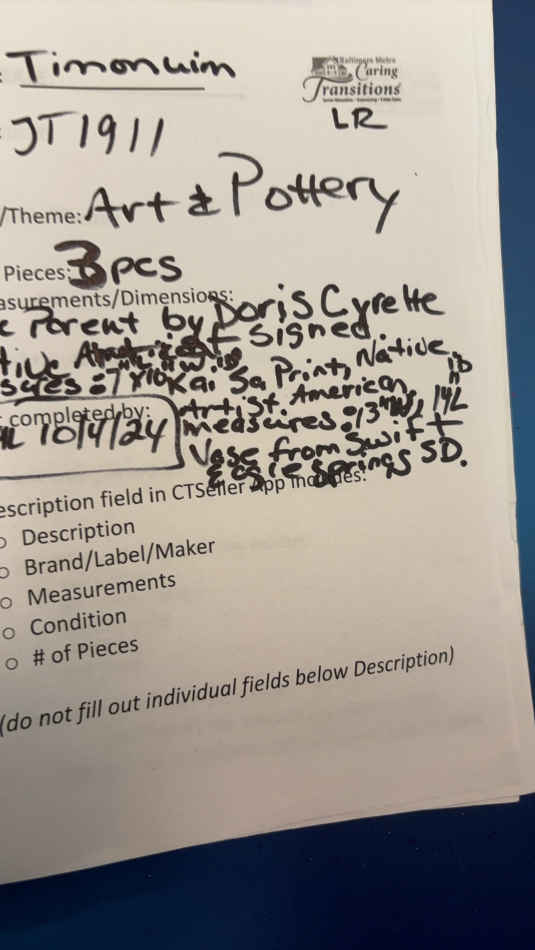 : Timonuim
Baltimore Metro
Caring
Transitions
: JT1911
LR
/Theme: Art & Pottery
Pieces: 3pcs
asurements/Dimensions:
c Parent by Doris Cyrette
Signed.
tive
sures: 7"x10" Ka. Sa Print, Native
Artist. American
completed by:
measures: 13"W, 14L
AL 10/4/24
Vase from Swift
Eagle Springs SD.
escription field in CTSeller App includes:
○ Description
○ Brand/Label/Maker
○ Measurements
○ Condition
○ # of Pieces
(do not fill out individual fields below Description)